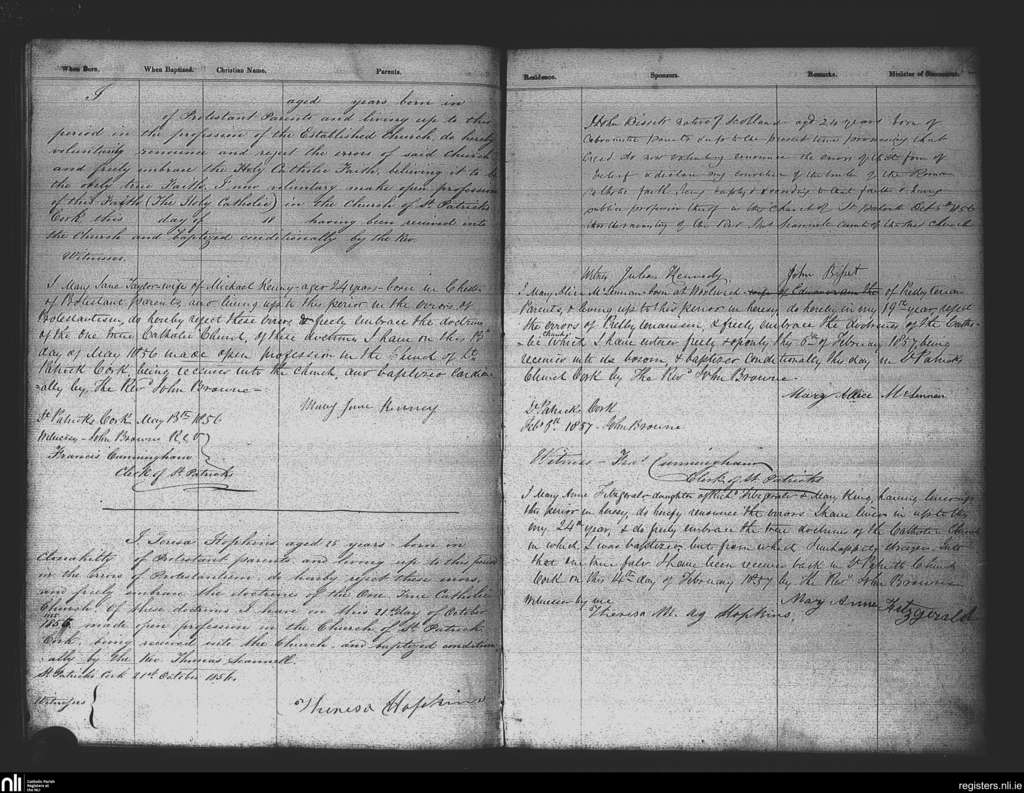 When Born. When Baptized. Christian Name. Parents.
I aged years born in
of Protestant Parents and living up to this
period in the profession of the Established Church, do hereby
voluntarily renounce and reject the errors of said Church
and freely embrace the Holy Catholic Faith, believing it to be
the only true Faith. I now voluntary make open profession
of this Faith (The Holy Catholic) in the Church of St Patricks
Cork this day of 18 having been received into
the Church and baptized conditionally by the Rev
Witnesses.
I Mary Jane Taylor wife of Michael Kenny aged 24 years born in
of Protestant Parents, and living up to this period in the errors of
Protestantism, do hereby reject these errors & freely embrace the doctrines
of the one true Catholic Church, of these doctrines I have on this 13th
day of May 1856 made open profession in the Church of St
Patrick Cork, being received into the Church and baptized condition
ally by The Revd John Browne
Mary Jane Kenney
St Patricks Cork May 13th 1856
Witnesses - John Browne
Francis Cunningham
Clerk of St Patricks
I Teresa Hopkins aged 15 years born in
Clonakilty of Protestant parents and living up to this period
in the errors of Protestantism do hereby reject these errors,
and freely embrace the doctrines of the One True Catholic
Church. Of these doctrines I have on this 21st day of October
1856 made open profession in the Church of St Patrick
Cork, being received into the Church, and baptized condition
ally by the Rev Thomas Scannell.
St Patricks Cork 21st October 1856
Witnesses
Theresa Hopkins
Residence. Sponsors. Remarks. Minister of Sacrament.
I John Bissett native of Scotland aged 24 years born of
parents & up to the present time professing that
Creed do now voluntary renounce the errors of that form of
belief & declare my conviction of the truth of the Roman
Catholic faith, being baptized according to that faith & being
public profession thereof in the Church of St Patrick Octr 1856
the ministry of the Revd Thos Scannell Curate of the said Church
Witness Julian Kennedy John Bisset
I Mary Alice McLennan born at Woolwich wife of of Presbyterian
Parents, & living up to this period in heresy, do hereby in my 19th year, reject
the errors of Presbyterianism, & freely embrace the doctrines of the Catho-
lic Church which I have entered freely & openly this 6th of February 1857 being
received into its bosom, & baptized conditionally this day in St Patricks
Church Cork by The Revd John Browne.
Mary Alice McLennan
St Patricks Cork
Feb 6th 1857 - John Browne
Witness - Frs Cunningham
Clerk of St Patricks
I Mary Anne Fitzgerald daughter of Richd Fitzgerald & Mary King, having lived up to
the period in heresy, do hereby renounce the errors I have lived in up to this
my 24th year, & do freely embrace the true doctrines of the Catholic Church
in which I was baptized, but from which I unhappily strayed. Into
that one true fold I have been received back in St Patricks Church
Cork on this 14th day of February 1857 by The Revd John Browne
Witnessed by me Mary Anne Fitzgerald
Theresa M. Hopkins.
nli Catholic Parish Registers at the NLI
registers.nli.ie